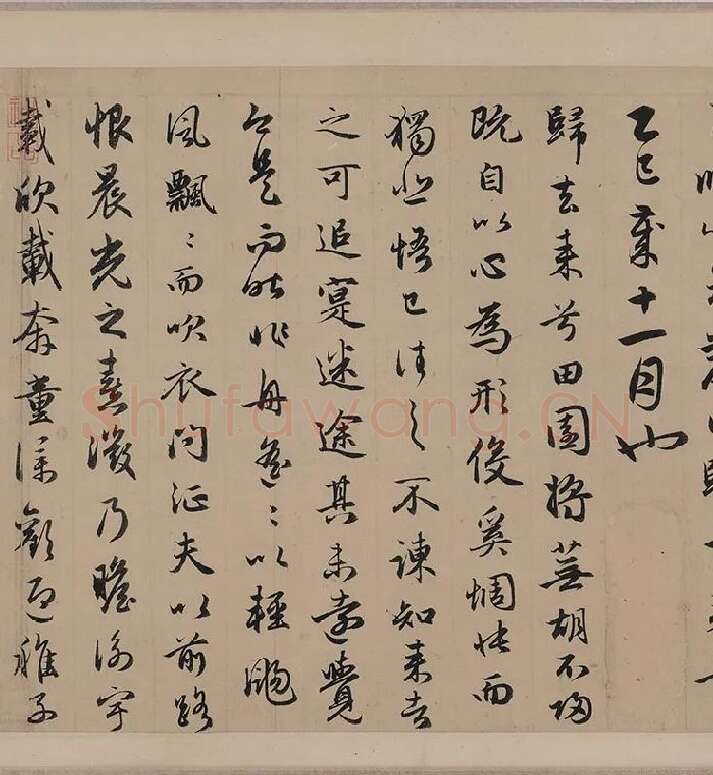 乙巳歲十一月也
歸去来兮田園將蕪胡不歸
既自以心為形役奚惆悵而
獨悲悟已往之不諫知来者
之可追寔迷途其未遠覺
今是而昨非舟遙〻以輕颺
風飄〻而吹衣問征夫以前路
恨晨光之熹微乃瞻衡宇
載欣載奔童僕歡迎稚子
Shufawang.CN